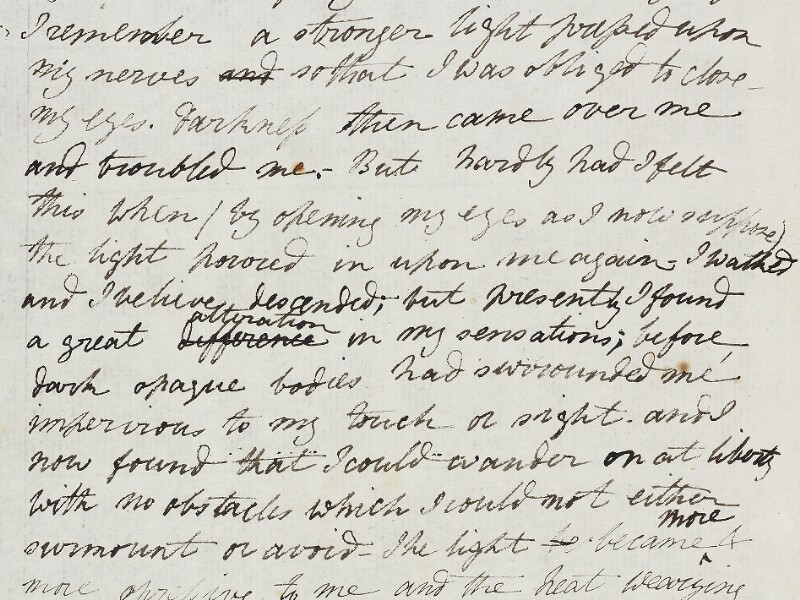 I remember a stronger light pressed upon
my nerves and so that I was obliged to close
my eyes. Darkness then came over me
and troubled me. - But hardly had I felt
this when (by opening my eyes as I now suppose)
the light poured in upon me again - I walked
and I believe descended; but presently I found
alteration
a great difference in my sensations; before,
dark opaque bodies had surrounded me
impervious to my touch or sight. and I
now found that I could wander on at liberty
with no obstacles which I could not either
more
surmount or avoid - The light became &
more oppressive to me and the heat wearying